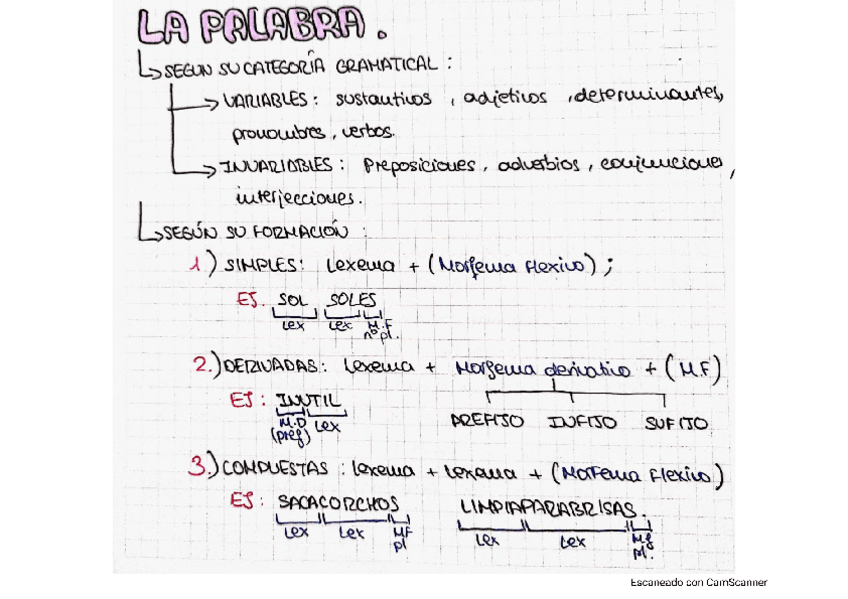 LA PALABRA.
SEGUN SU CATEGORÍA GRAMATICAL:
VARIABLES: sustantivos, adjetivos, determinantes,
pronombres, verbos.
INVARIABLES: Preposiciones, adverbios, conjunciones,
interjecciones.
SEGÚN SU FORMACIÓN:
1.) SIMPLES: Lexema + (Morfema flexivo);
EJ. SOL SOLES
Lex Lex M.F
nº pl.
2.) DERIVADAS: Lexema + Morfema derivativo + (M.F)
EJ: INUTIL
M.D Lex
(pref)
PREFIJO INFIJO SUFIJO
3.) COMPUESTAS: Lexema + Lexema + (Morfema Flexivo)
EJ: SACACORCHOS LIMPIAPARABRISAS.
Lex Lex MF Lex Lex M.f
pl pl.
Escaneado con CamScanner